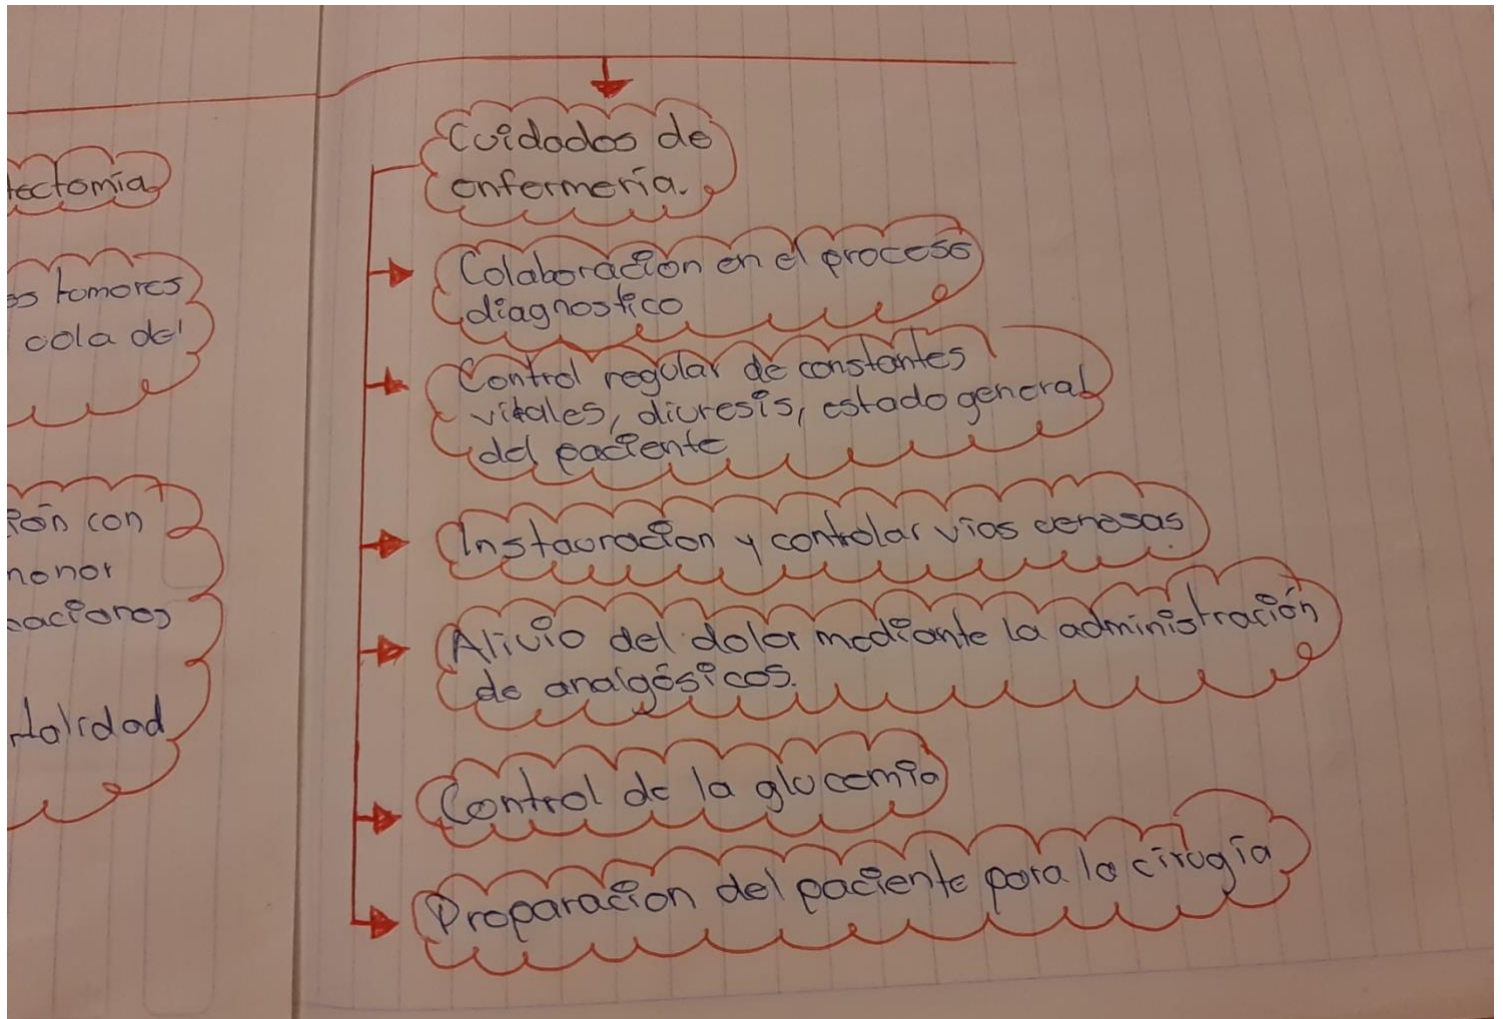 tectomía
os tumores
cola del
ión con
menor
aciones
talidad
Cuidados de
enfermería.
Colaboración en el proceso
diagnostico
Control regular de constantes
vitales, diuresis, estado general
del paciente
Instauracion y controlar vías venosas
Alivio del dolor mediante la administración
de analgésicos.
Control de la glucemia
Preparacion del paciente para la cirugía